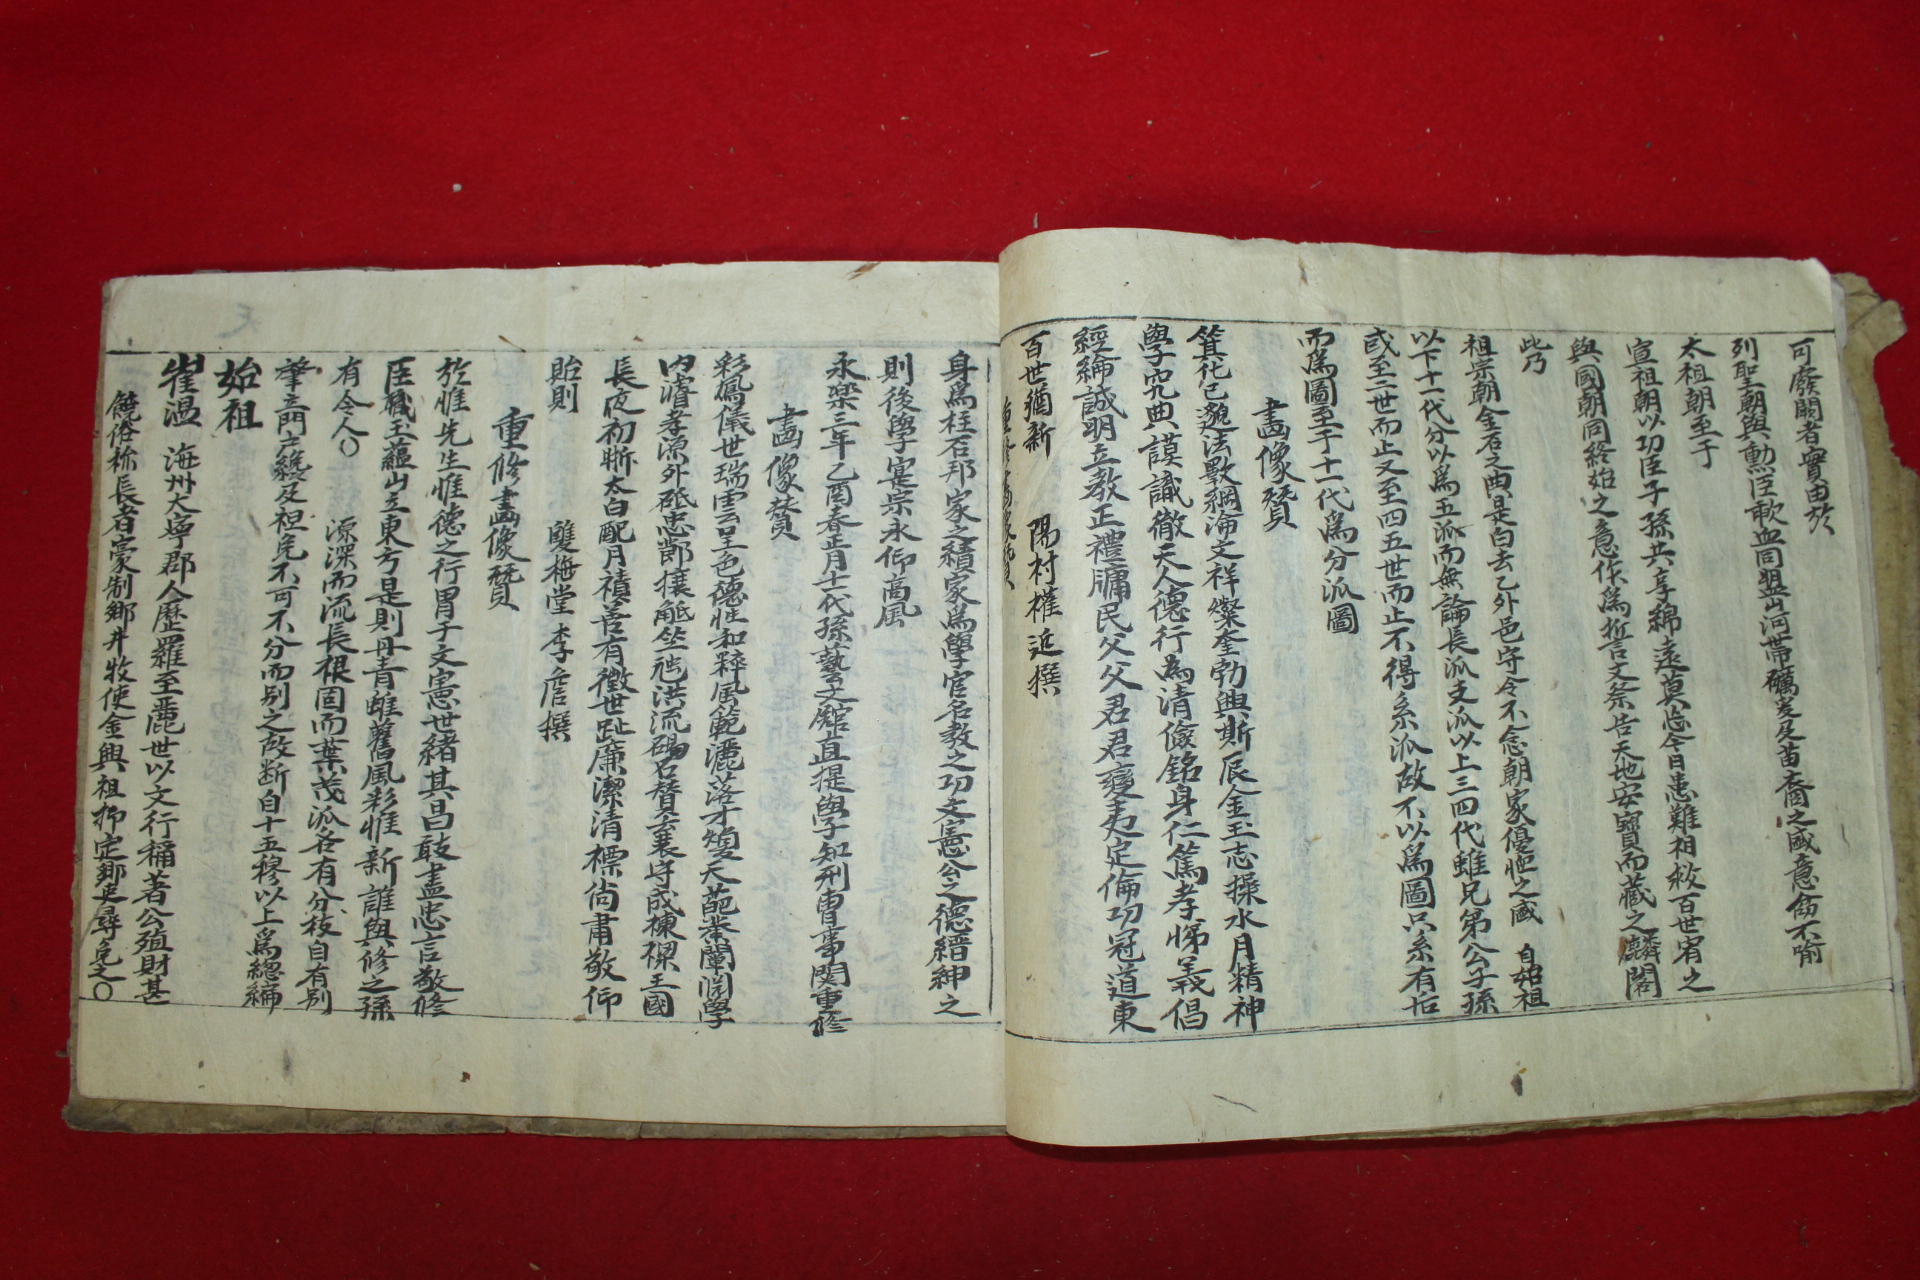 可廢闕者實由於
列聖朝與勳臣歃血同盟山河帶礪爰及苗裔之盛意倘不喻
太祖朝至于
宣祖朝以功臣子孫共享綿遠莫忘今日患難相救百世宥之
與國朝同終始之意作爲誓言文祭告天地安寶而藏之麟閣
此乃
祖宗朝金石之典是白去乙外邑守令不念朝家優恤之盛 自始祖
以下十一代分以爲五派而無論長派支派以上三四代雖兄弟公子孫
或至二世而止又至四五世而止不得系派故不以爲圖只系有后
而爲圖至于十一代爲分派圖
畫像贊
箕化已邈法斁綱淪文祥燦奎勃興斯辰金玉志操水月精神
學究典謨識徹天人德行爲淸儉銘身仁篤孝悌義倡
經綸誠明立教正禮牖民父父君君變夷定倫功冠道東
百世猶新 陽村權近撰
身爲柱石邦家之績家爲學官名教之功文憲公之德縉紳之
則後學寔宗永仰高風
永樂三年乙酉春正月十一代孫藝文館直提學知刑曹事閔重修
畫像贊
彩鳳儀世瑞雲呈色德性和粹風範灑落才 天葩 闡闵學
內濬孝源外砥忠節攘觝坐 洪流碣石贊襄守成棟樑王國
長夜初晣太白配月積善有徵世趾廉潔淸標尙肅敬仰
貽則 雙梅堂李詹撰
重修畫像贊
於惟先生惟德之行胃子文憲世緖其昌敲盡忠言敬修
臣職玉蘊山立東方是則丹青雖舊風彩惟新誰與修之孫
有令人○ 源深而流長根固而葉茂派各有分枝自有別
肇立門 及袒免不可不分而別之故断自十五穆以上爲總編
始祖
崔溫 海州大寧郡人歷羅至麗世以文行稱著公殖財甚
饒俗称長者豪制鄕井牧使金與祖抑定鄕吏尋免之○